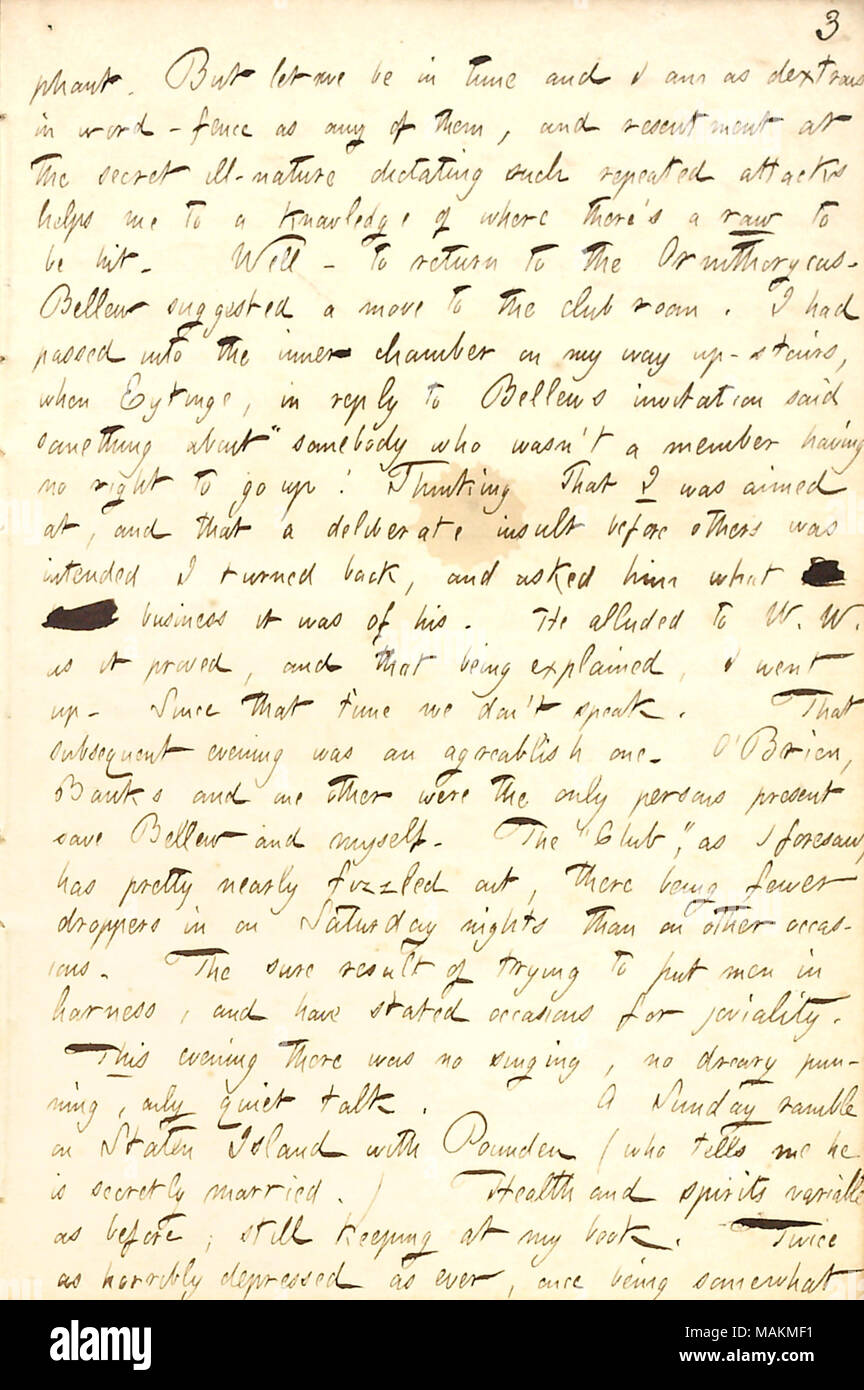 3
phant. But let me be in tune and I am as dextrous
in word-fence as any of them, and resentment at
the secret ill-nature dictating such repeated attacks
helps me to a knowledge of where there's a raw to
be hit. Well - to return to the Ornithorycus-
Bellew suggested a move to the club room. I had
passed into the inner chamber on my way up-stairs,
when Eytinge, in reply to Bellews invitation said
something about "somebody who wasn't a member having
no right to go up! Thinking that I was aimed
at, and that a deliberate insult before others was
intended I turned back, and asked him what
business it was of his. He alluded to W. W.
as it proved, and that being explained, I went
up- Since that time we don't speak. That
subsequent evening was an agreablish one. O'Brien,
Banks and one other were the only persons present
save Bellew and myself. The "Club," as I foresaw,
has pretty nearly fuzzled out, there being fewer
droppers in on Saturday nights than on other occas-
ions. The sure result of trying to put men in
harness, and have stated occasions for joviality.
This evening there was no singing, no dreary pun-
ning, only quiet talk. A Sunday ramble
on Staten Island with Pounden (who tells me he
is secretly married.) Health and spirits variable
as before; still keeping at my book. Twice
as horribly depressed as ever, once being somewhat
alamy
Image ID: MAKMF1
www.alamy.com